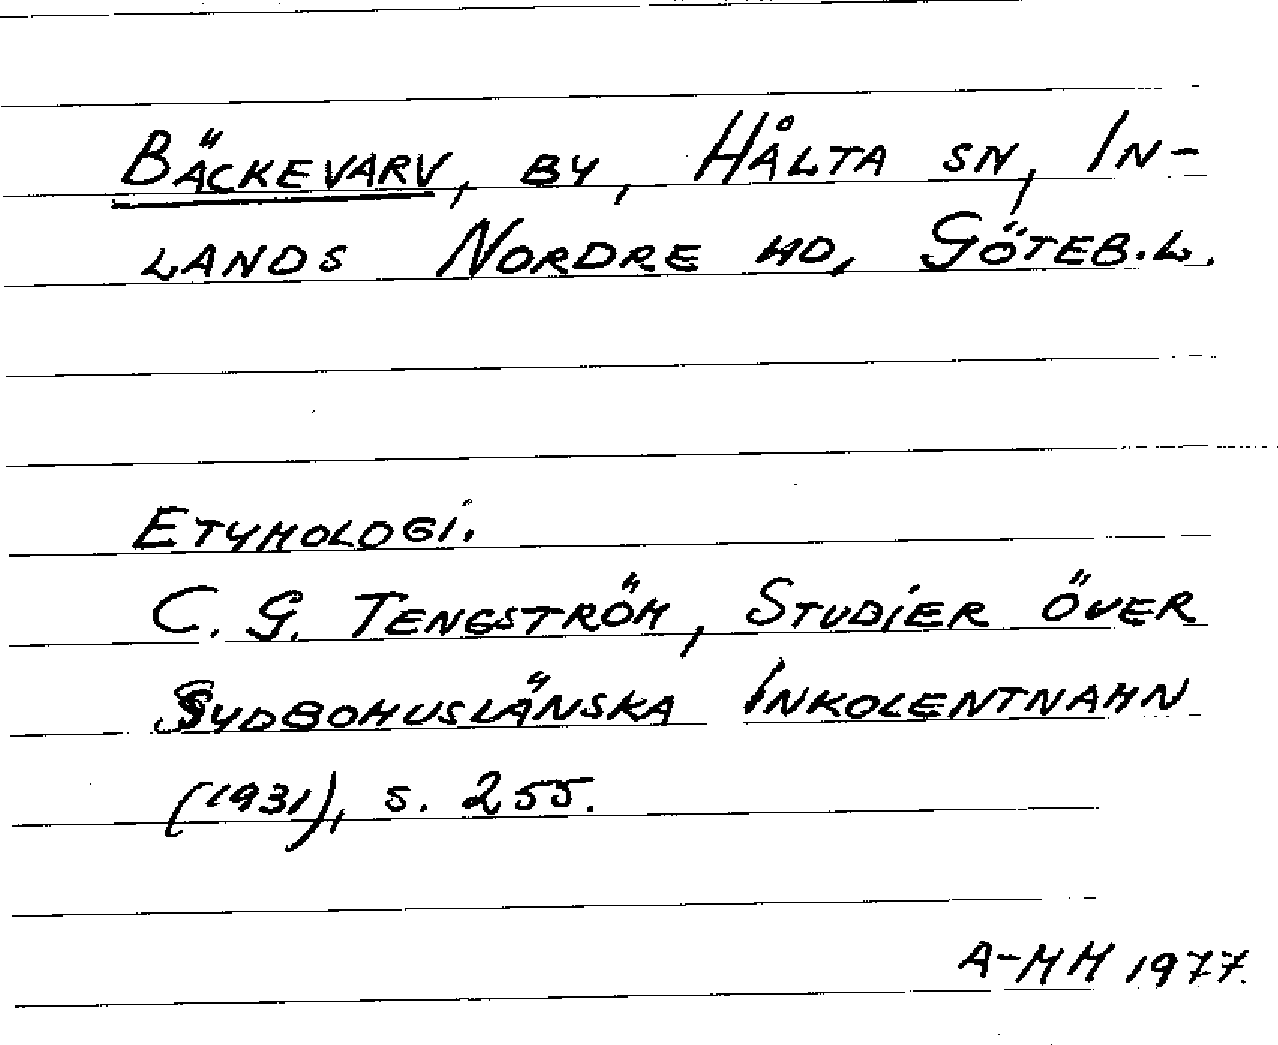 BÄCKEVARV, BY, HÅLTA SN, IN-
LANDS NORDRE HD, GÖTEB.L.
ETYMOLOGI.
C. G. TENGSTRÖM, STUDIER ÖVER
SYDBOHUSLÄNSKA INKOLENTNAMN
(1931), S. 255.
A-MM 1977.